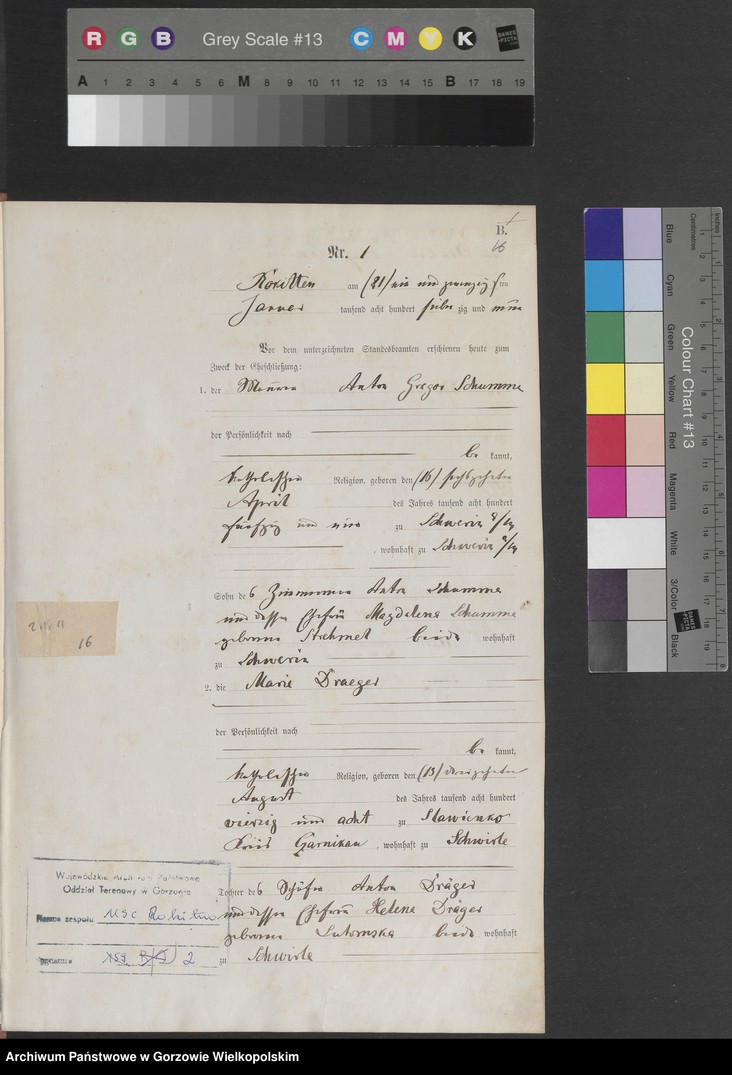 R G B Grey Scale #13 C M Y K DANES PICTA .COM
A 1 2 3 4 5 6 M 8 9 10 11 12 13 14 15 B 17 18 19
B.
16
Nr. 1
Rokitten am (21) ein und zwanzigsten
Januar tausend acht hundert sieben zig und neun
Vor dem unterzeichneten Standesbeamten erschienen heute zum
Zweck der Eheschließung:
1. der Maurer Anton Gregor Schumma
der Persönlichkeit nach
be kannt,
katholischer Religion, geboren den (16) sechszehnten
April des Jahres tausend acht hundert
fünfzig und zu Schwerin a/W
, wohnhaft zu Schwerin a/W
Sohn des Zimmermann Anton Schumma
und dessen Ehefrau Magdalena Schumma
geborene beide wohnhaft
zu Schwerin
2. die Marie Draeger
der Persönlichkeit nach
be kannt,
katholischer Religion, geboren den (13) dreizehnten
August des Jahres tausend acht hundert
vierzig und acht zu Slawienko
Kreis Czarnikau , wohnhaft zu Schwirle
Tochter des Schäfer Anton Dräger
und dessen Ehefrau Helene Dräger
geborene Lutomska beide wohnhaft
zu Schwirle
16
Wojewódzkie Archiwum Państwowe
Oddział Terenowy w Gorzowie
Nazwa zespołu USC Rokitno
Sygnatura 2
Colour Chart #13
Blue
Cyan
Green
Yellow
Red
Magenta
White
3/Color
Black
Centimetres
Inches
DANES PICTA .COM
Archiwum Państwowe w Gorzowie Wielkopolskim